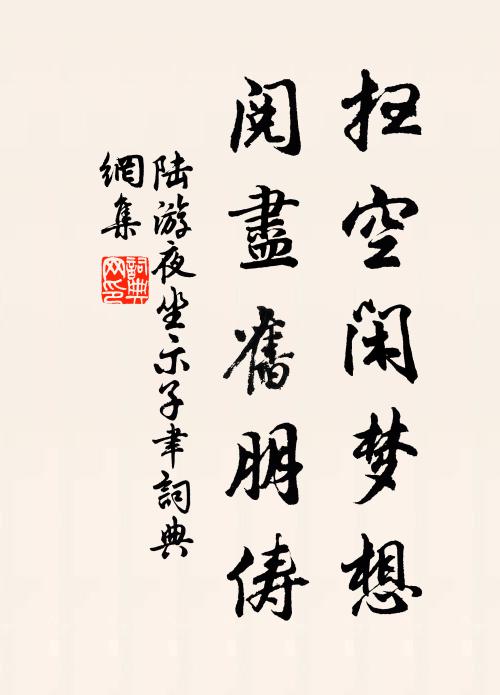 扫空闲梦想
阅尽舊朋俦
陆游夜坐示子聿詞典
網集
詞典
网印